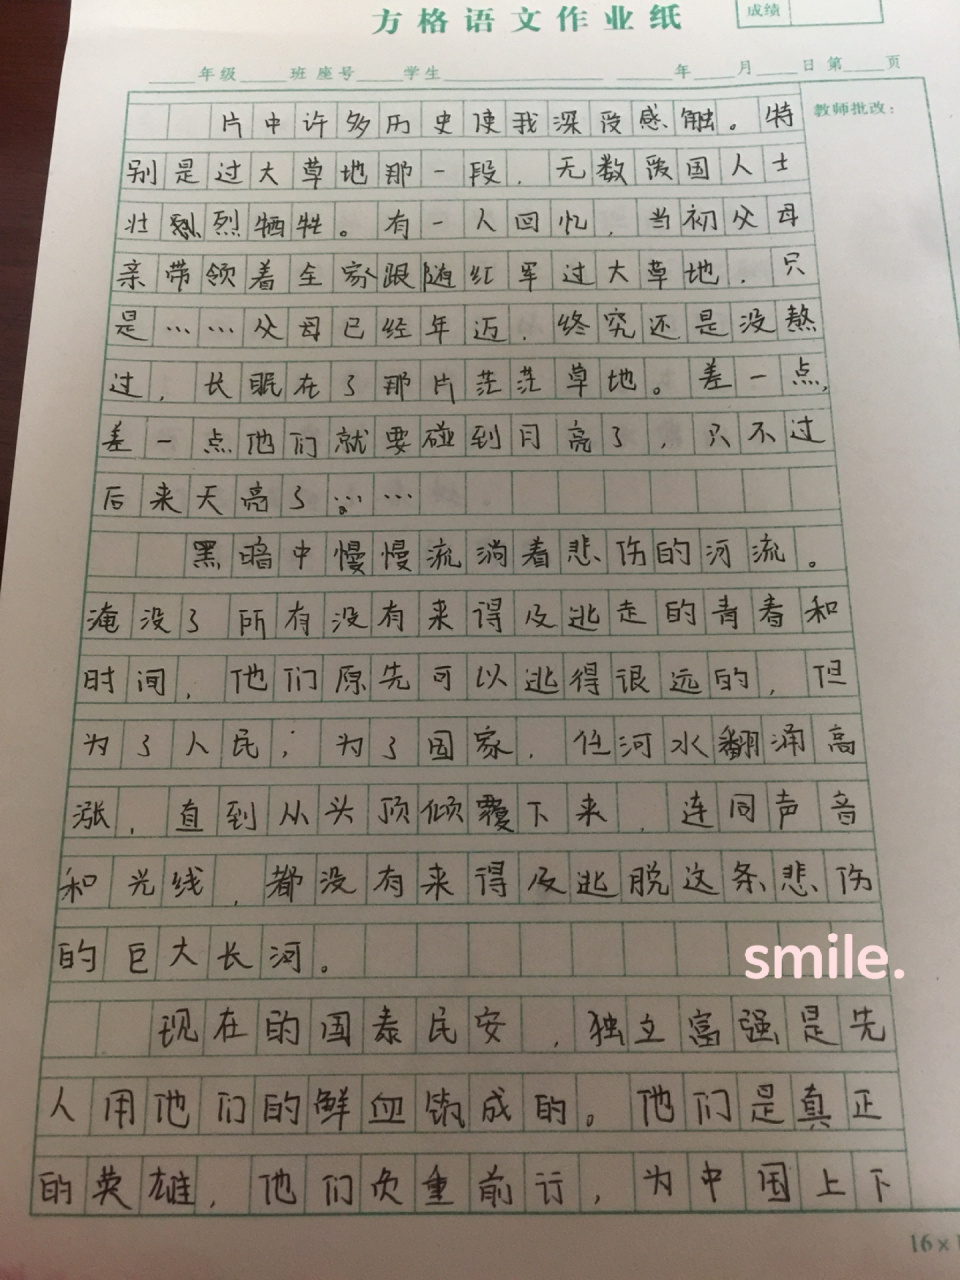 方格语文作业纸
成绩
年级 班 座号 学生 年 月 日 第 页
教师批改：
片中许多历史使我深受感触。特
别是过大草地那一段，无数爱国人士
壮烈牺牲。有一人回忆，当初父母
亲带领着全家跟随红军过大草地，只
是……父母已经年迈，终究还是没熬
过，长眠在了那片茫茫草地。差一点，
差一点他们就要碰到月亮了，只不过
后来天亮了……
黑暗中慢慢流淌着悲伤的河流。
淹没了所有没有来得及逃走的青春和
时间，他们原先可以逃得很远的，但
为了人民，为了国家，任河水翻涌高
涨，直到从头顶倾覆下来，连同声音
和光线，都没有来得及逃脱这条悲伤
的巨大长河。
smile.
现在的国泰民安，独立富强是先
人用他们的鲜血铸成的。他们是真正
的英雄，他们负重前行，为中国上下